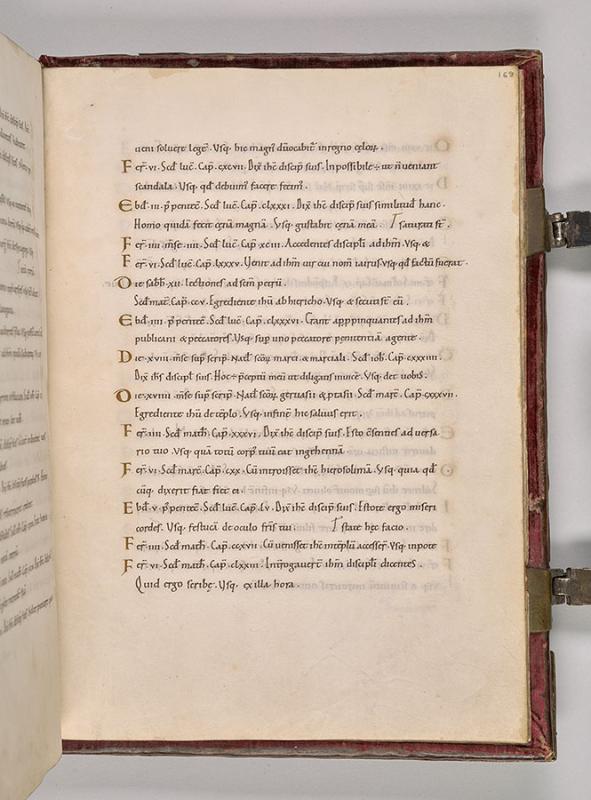 169
ueni soluere legē. Vsq. hic magn̄ dn̄ocabit̄ inregno cęlor̄.
Fer̄. vi. Scd̄ luc̄. Cap̄. cxcvii. Dix̄ ihc̄ discip̄ suis. Inpossibile ÷ ut n̄ ueniant
scandala. Vsq. qd̄ debuim̄ facere fecim̄.
Ebd̄. iii. p̄ penteē. Scd̄ luc̄. Cap̄. clxxxi. Dix̄ ihc̄ discip̄ suis similitud̄ hanc.
Homo quidā fecit cęnā magnā. Vsq. gustabit cęnā meā.
Fer̄. iiii. Scd̄ luc̄. Cap̄. xciii. Accedentes discipl̄i ad ihm̄. Vsq. &
Fer̄. vi. Scd̄ luc̄. Cap̄. lxxxv. Venit ad ihm̄ uir cui nom̄ iairus. Vsq. qd̄ factū fuerat.
Die sabb̄. xii. lectiones ad scm̄ petrū.
Scd̄ mat̄. Cap̄. ccv. Egrediente ihū ab hiericho. Vsq. & secuti st̄ eū.
Ebd̄. iiii. p̄ penteē. Scd̄ luc̄. Cap̄. clxxxvi. Erant apppinquantes ad ihm̄
publicani & peccatores. Vsq. sup uno peccatore penitentiā agente.
Die. xviii. m̄se sup̄ scrip̄. Nat̄l scōr̄ marci & marciali. Scd̄ ioh̄. Cap̄. cxxxiiii.
Dix̄ ihs̄ discipl̄ suis. Hoc ÷ p̄ceptū meū ut diligatis inuicē. Vsq. det uobis.
Die. xviiii. m̄se sup̄ scrip̄. Nat̄l scōr̄ geruasii & p̄tasii. Scd̄ marc̄. Cap̄. cxxxvii.
Egrediente ihū de tēplo. Vsq. infinē hic saluus erit.
Fer̄. iiii. Scd̄ math̄. Cap̄. xxxvi. Dix̄ ihc̄ discip̄ suis. Esto c̄senties aduersa
rio tuo. Vsq. quā totū corp̄ tuū eat ingehennā.
Fer̄. vi. Scd̄ marc̄. Cap̄. cxx. Cū introisset ihc̄ hierosolimā. Vsq. quia qd̄
cūq. dixerit fiat fiet ei.
Ebd̄. v. p̄ penteē. Scd̄ luc̄. Cap̄. lv. Dix̄ ihc̄ discip̄ suis. Estote ergo miseri
cordes. Vsq. festucā de oculo fr̄is tui. Tstate hęc facio.
Fer̄. iiii. Scd̄ math̄. Cap̄. ccxvii. Cū uenisset ihc̄ intēplū accesser̄. Vsq. inpote
Fer̄. vi. Scd̄ math̄. Cap̄. clxxiii. Introgauer̄t ihm̄ discipl̄i dicentes.
Quid ergo scribę. Vsq. ex illa hora.